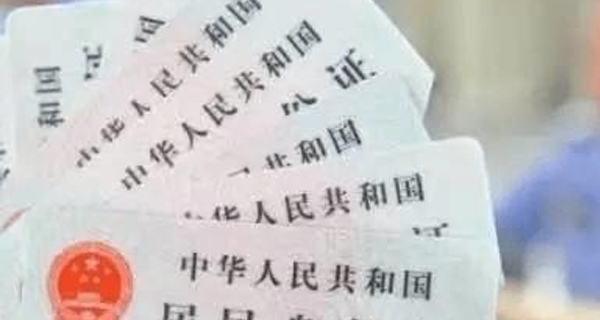 和国
证
中华人民共和国
中华人民共和国
证
共和国
华人民共和国
证
中华人民共和国
居民